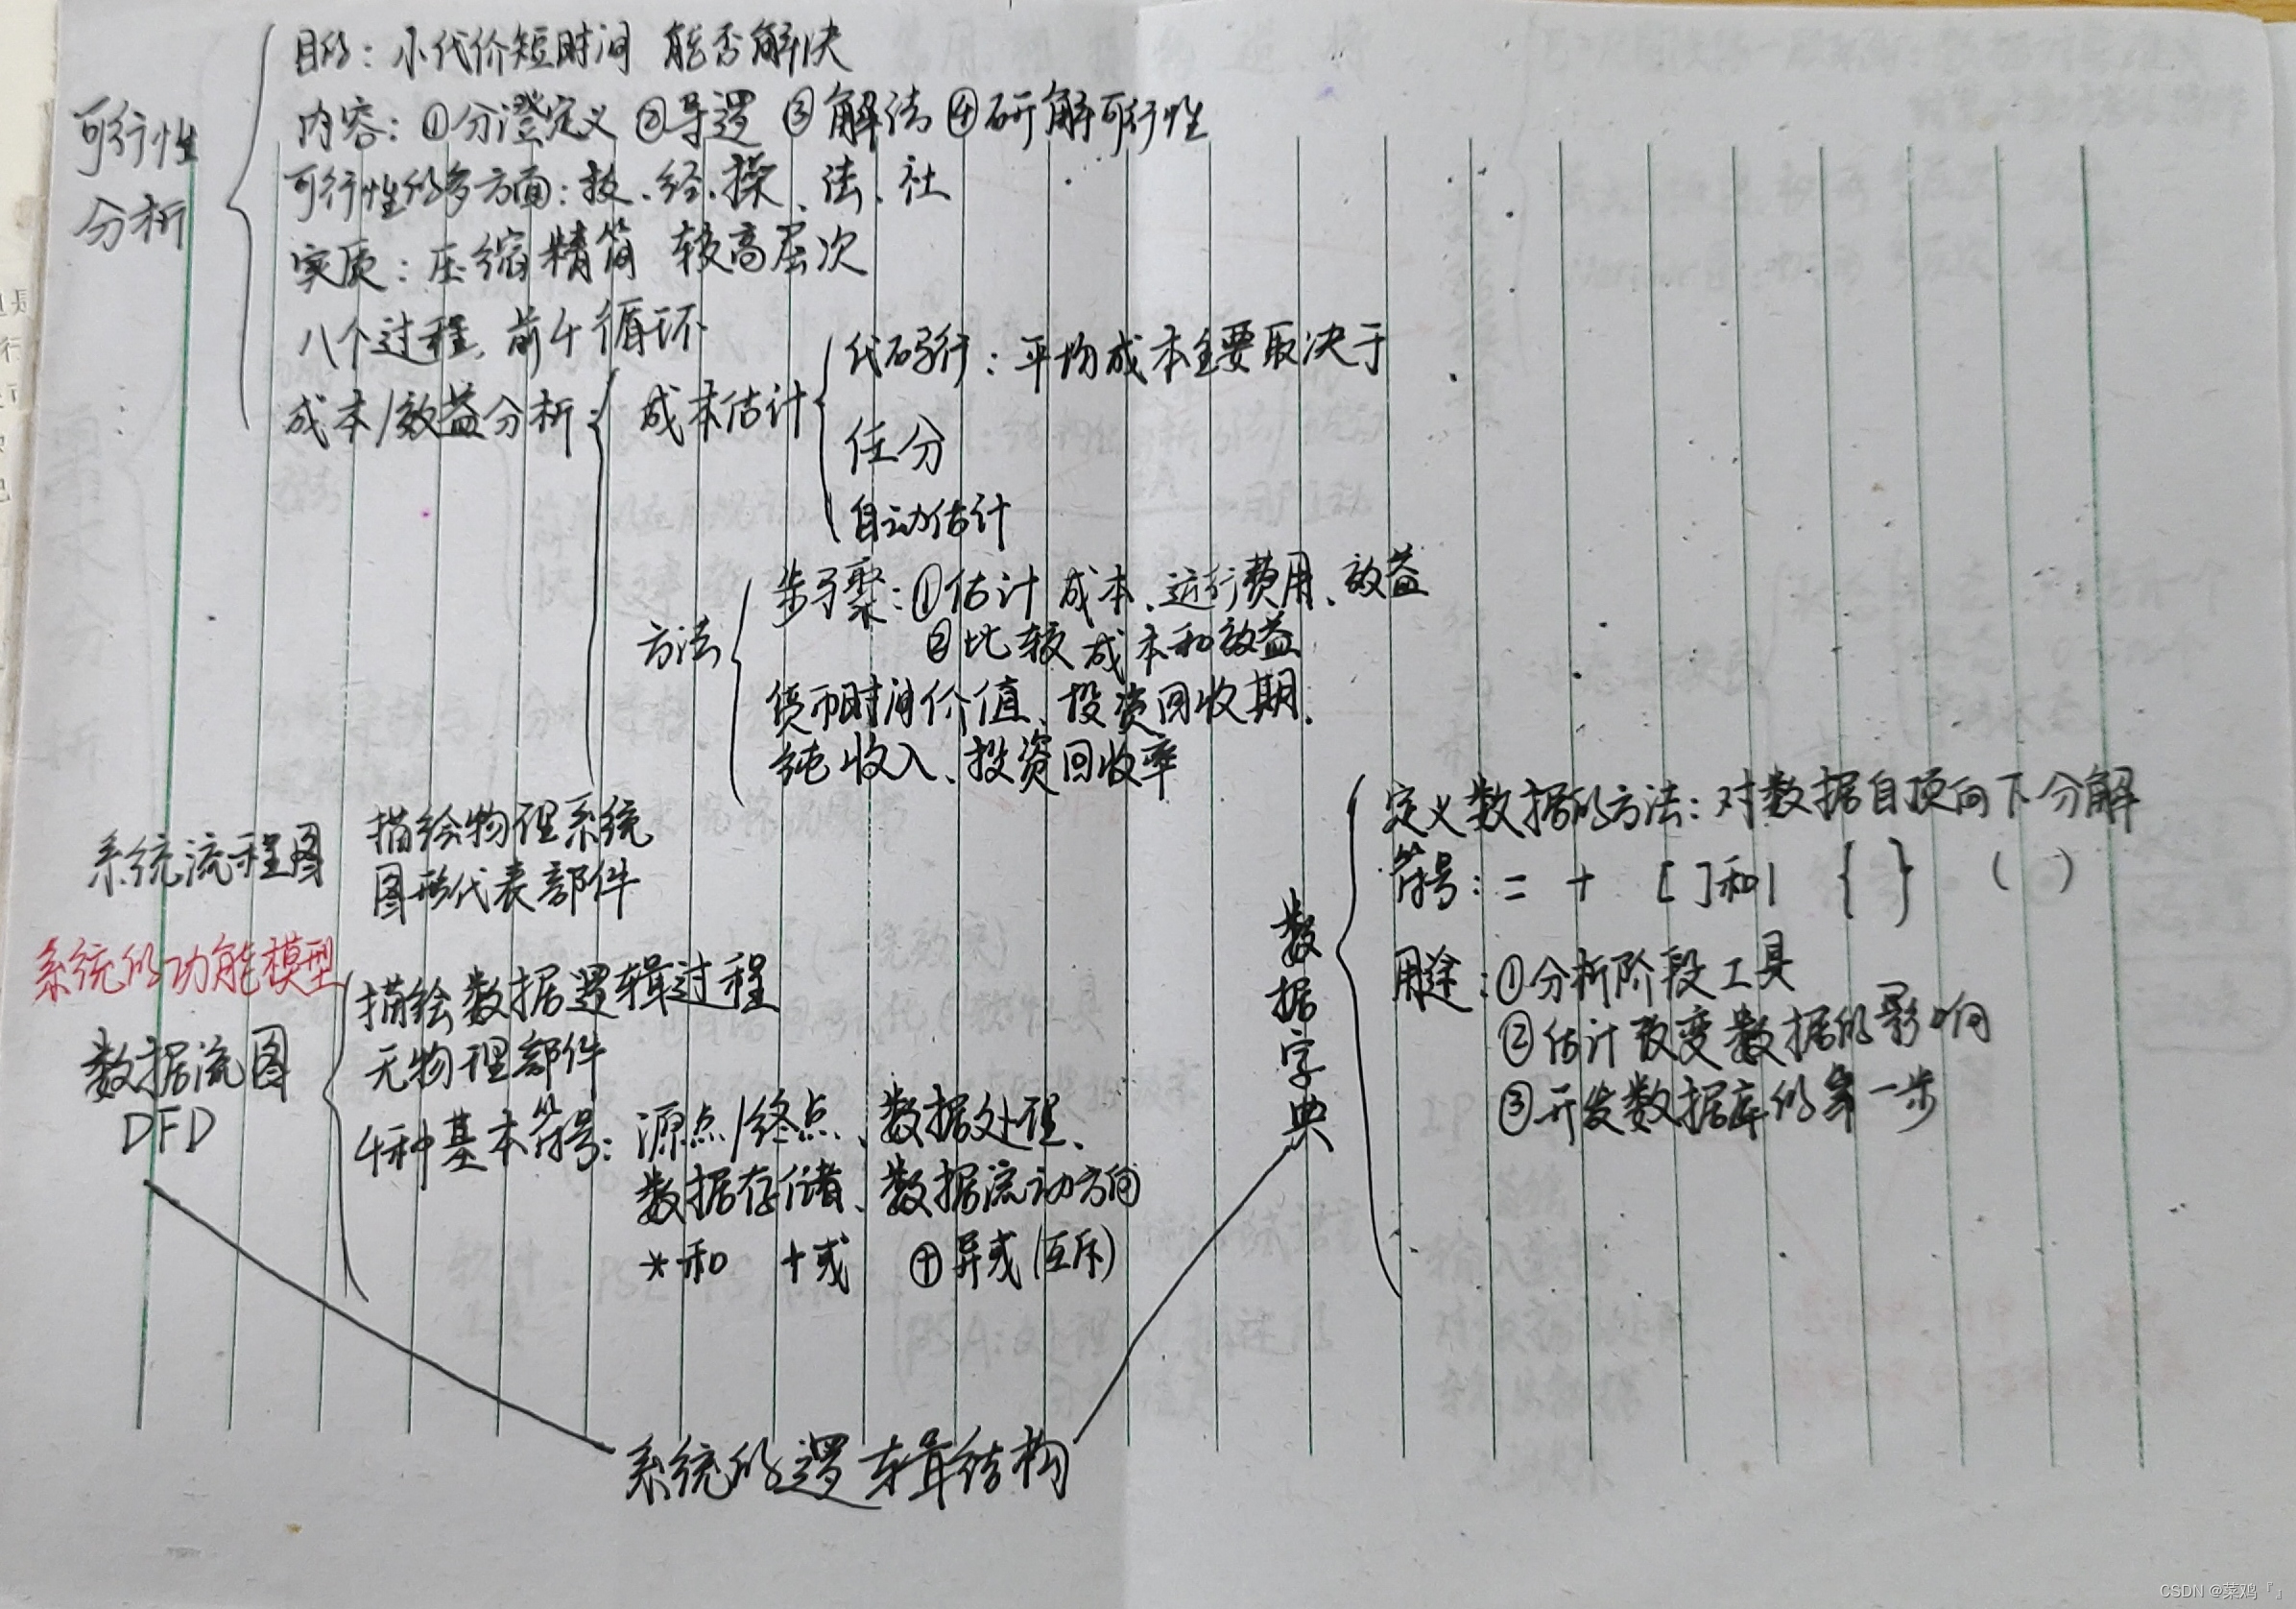 可行性
分析
目的：小代价短时间 能否解决
内容：①分澄定义 ②导逻 ③解法 ④研解可行性
可行性的多方面：技、经、操、法、社
实质：压缩精简 较高层次
八个过程，前4循环
成本/效益分析：
成本估计
代码行：平均成本主要取决于
任分
自动估计
方法
步骤：①估计 成本、运行费用、效益
②比较成本和效益
货币时间价值、投资回收期、
纯收入、投资回收率
系统流程图
描绘物理系统
图形代表部件
系统的功能模型
数据流图
DFD
描绘数据逻辑过程
无物理部件
4种基本符号：源点/终点、数据处理、
数据存储、数据流动方向
*和 +或 ⊕异或(互斥)
数据字典
定义数据的方法：对数据自顶向下分解
符号：= + [ ]和| { } ( )
用途：①分析阶段工具
②估计改变数据的影响
③开发数据库的第一步
系统的逻辑结构
CSDN @菜鸡『 』